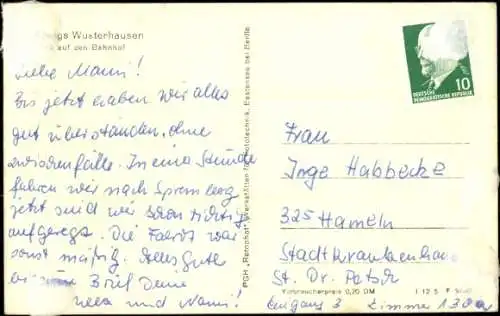 Wusterhausen
auf den Bahnhof
Liebe Mami!
Bis jetzt haben wir alles
gut überstanden, ohne
zwischenfälle. In eine Stunde
fahren wir nach Spremberg
jetzt sind wir schon richtig
aufgeregt. Die Fahrt war
sonst mäßig. Alles Gute
Brief Deine
und Nami!
PGH „Retrophot“, Werkstätten für Phototechnik, Eestensee bei Berlin
DEUTSCHE
DEMOKRATISCHE REPUBLIK
10
Frau
Inge Habbecke
325 Hameln
Stadtkrankenhaus
St. Dr. Patsch
Eingang 3 Zimmer 138a
Verbraucherpreis 0,20 DM
I 12 5